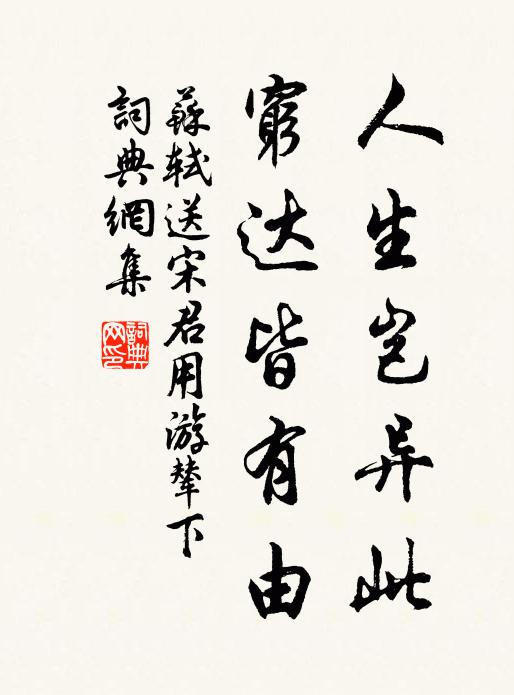 人生岂异此
窮达皆有由
蘇轼送宋君用游辇下
詞典網集
詞典網印